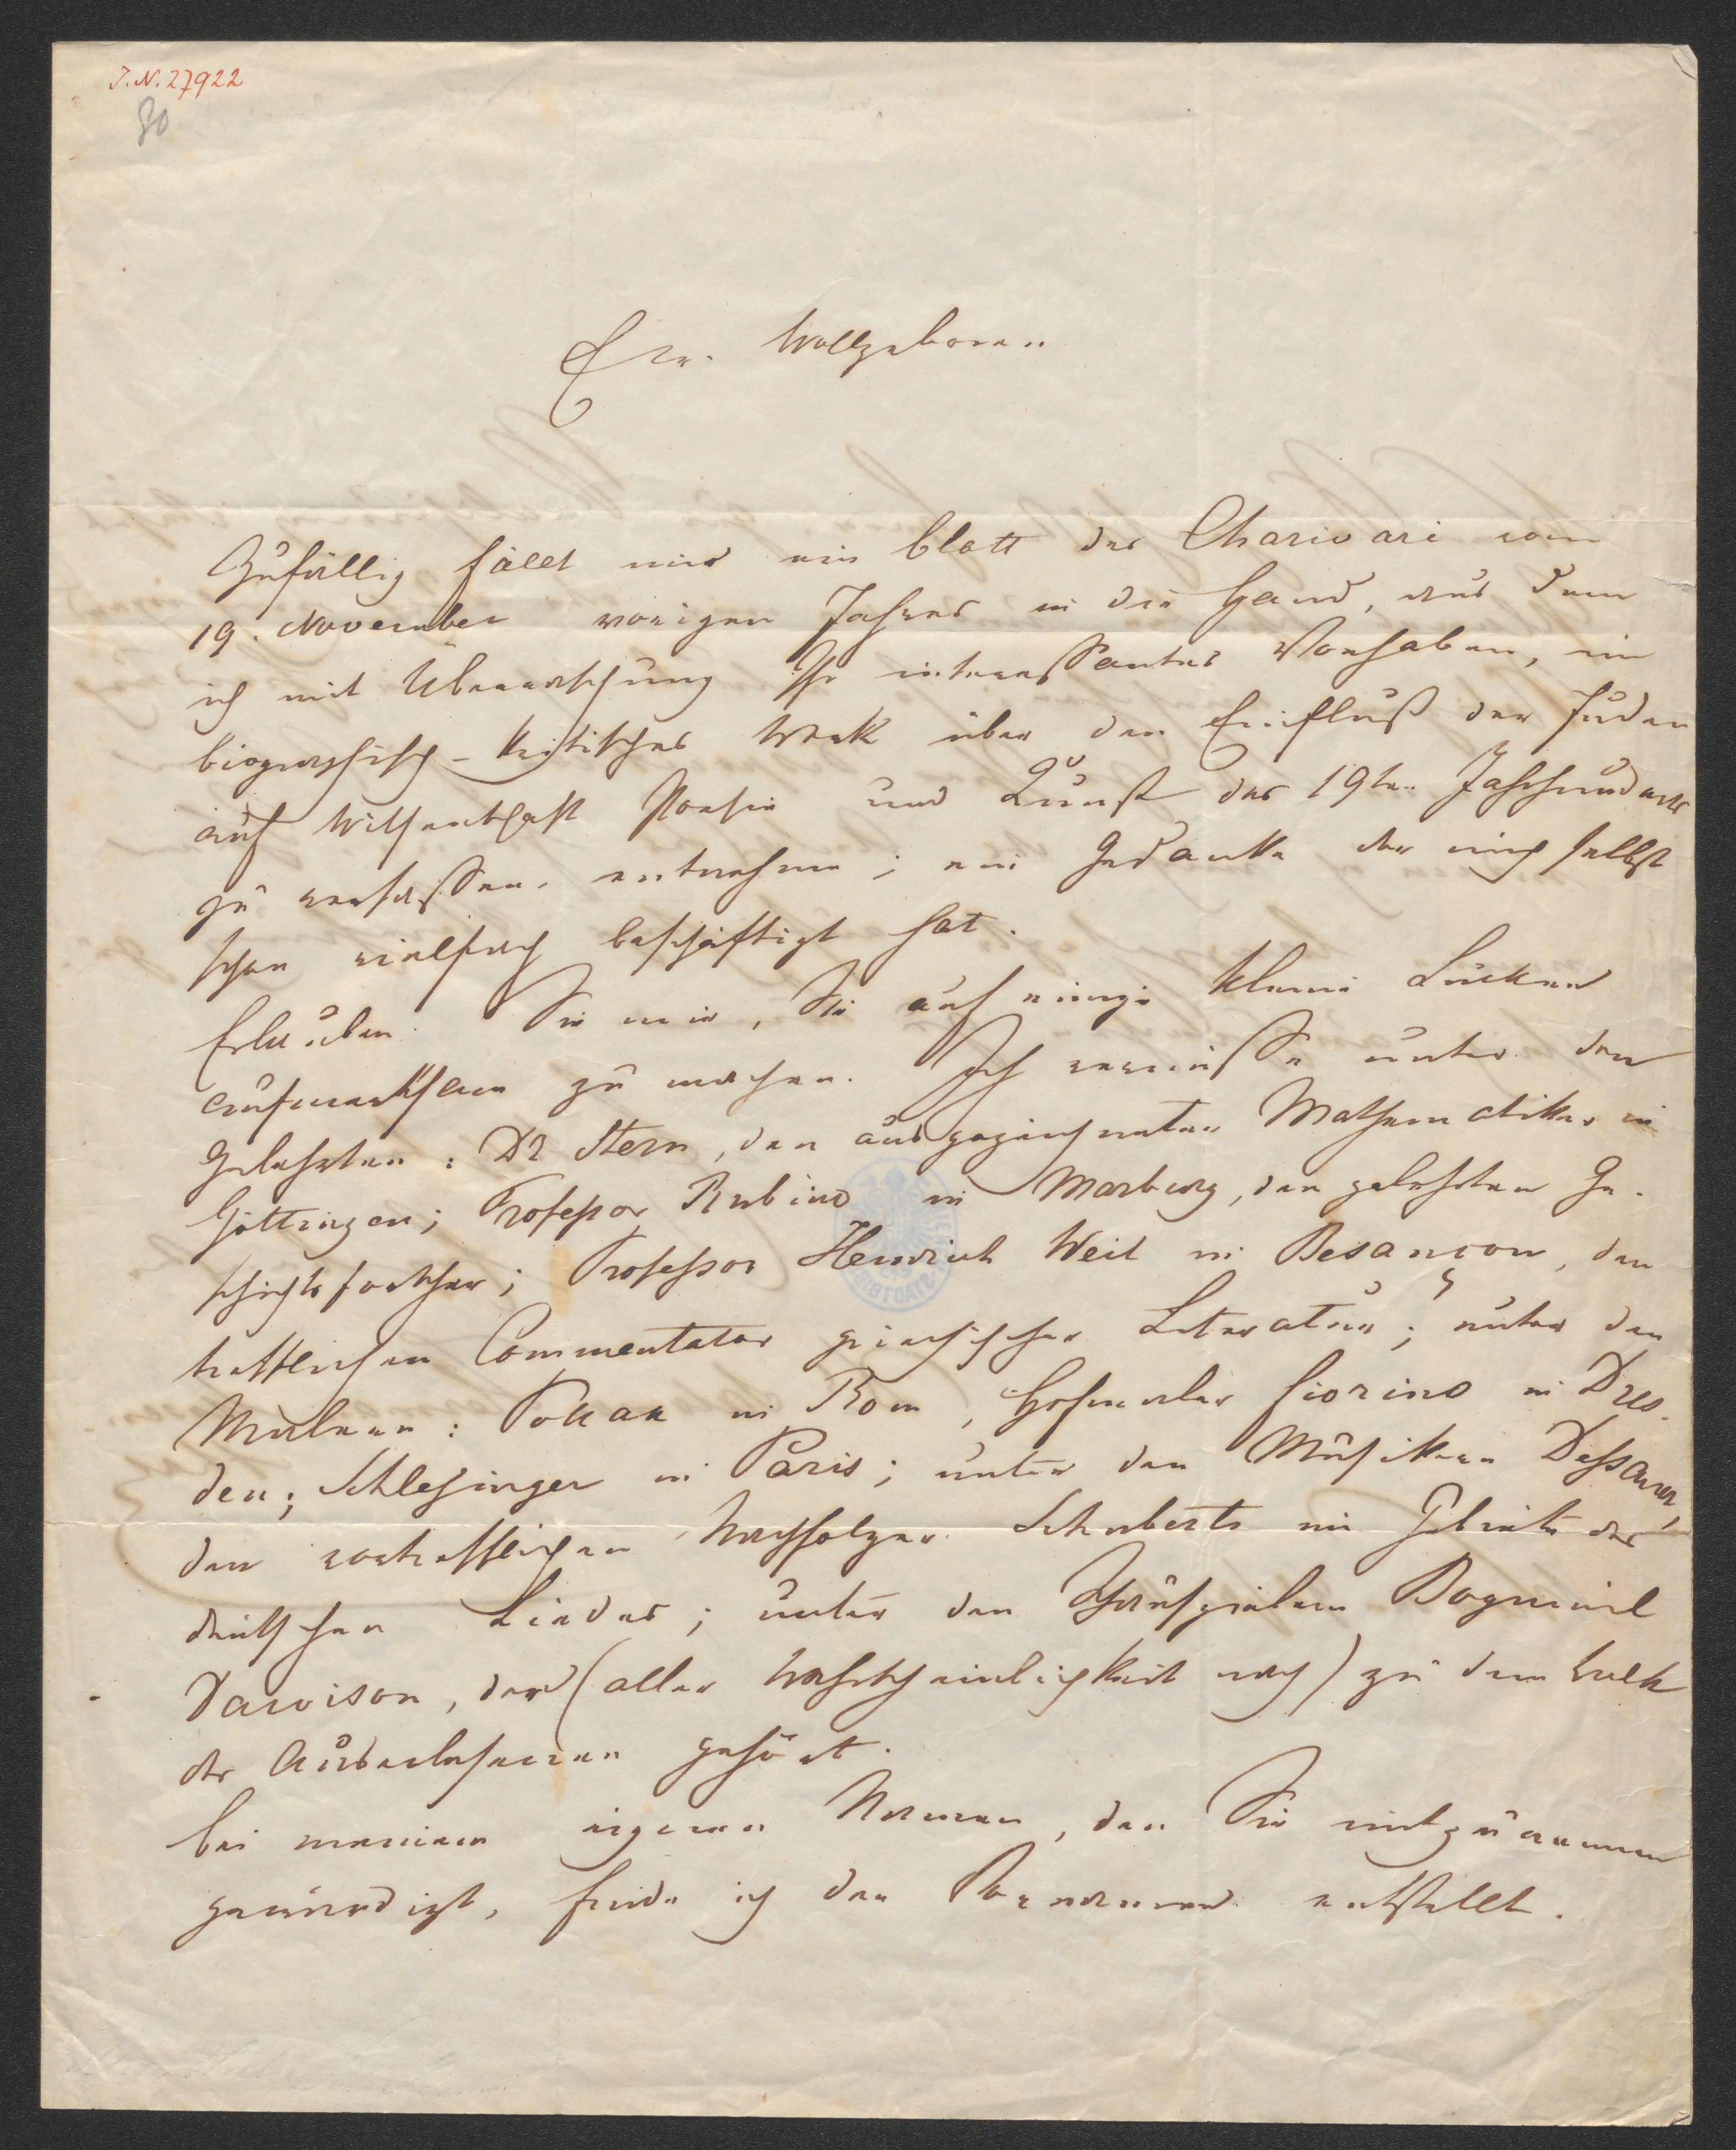 I.N. 27922
80
Ew. Wohlgeboren
Zufällig fällt mir ein Blatt des Charivari vom
19. November vorigen Jahres in die Hand, aus dem
ich mit Überraschung Ihr interessantes Vorhaben, ein
biographisch-kritisches Werk über den Einfluß der Juden
auf Wissenschaft Poesie und Kunst des 19ten Jahrhunderts
zu verfassen, entnehme; ein Gedanke der mich selbst
schon vielfach beschäftigt hat.
Erlauben Sie mir, Sie auf einige kleine Lücken
aufmerksam zu machen. Ich vermisse unter den
Gelehrten: Dr Stern, den ausgezeichneten Mathematiker in
Göttingen; Professor Rubino in Marburg, den gelehrten Ge-
schichtsforscher; Professor Heinrich Weil in Besançon, den
trefflichen Commentator griechischer Literatur; unter den
Malern: Pollak in Rom, Hofmaler Fiorino in Dres-
den; Schlesinger in Paris; unter den Musikern Dessauer,
den vortrefflichen Nachfolger Schuberts im Gebiete des
deutschen Liedes; unter den Schauspielern Bogumil
Dawison, der (aller Wahrscheinlichkeit nach) zu dem Volk
der Auserlesenen gehört.
Bei meinem eigenen Namen, den Sie mitzunennen
gewürdigt, finde ich den Vornamen entstellt.